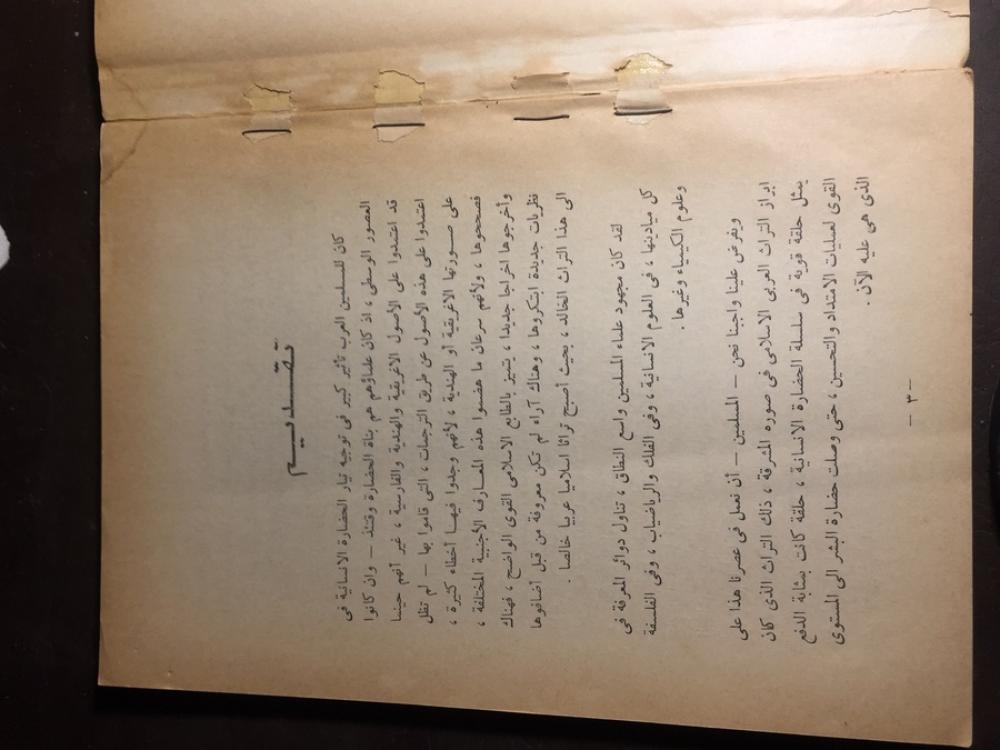 تقـــديـــم
كان للمسلمين العرب تأثير كبير فى توجيه تيار الحضارة الانسانية فى
العصور الوسطى ، اذ كان علماؤهم هم بناة الحضارة وقتئذ – وان كانوا
قد اعتمدوا على الأصول الاغريقية والهندية والفارسية ، غير أنهم حينما
اعتمدوا على هذه الأصول عن طريق الترجمات ، التى قاموا بها – لم تظل
على صــورتها الاغريقية أو الهندية ، لأنهم وجدوا فيهــا أخطاء كثيرة ،
فصححوها ، ولأنهم سرعان ما هضموا هذه المعــارف الأجنبية المختلفة ،
وأخرجوها اخراجا جديدا ، يتميز بالطابع الاسلامى القوى الواضح ، فهناك
نظريات جديدة ابتكروها ، وهناك آراء لم تكن معروفة من قبل أضافوها
الى هذا التراث الخالد ، بحيث أصبح تراثا اسلاميا عربيا خالصا .
لقد كان مجهود علماء المسلمين واسع النطاق ، تناول دوائر المعرفة فى
كل ميادينها ، فى العلوم الانسانية ، وفى الفلك والرياضيات ، وفى الفلسفة
وعلوم الكيمياء وغيرها .
ويفرض علينا واجبنا نحن – المسلمين – أن نعمل فى عصرنا هذا على
ابراز التراث العربى الاسلامى فى صوره المشرقة ، ذلك التراث الذى كان
يمثل حلقة قوية فى سلسلة الحضارة الانسانية ، حلقة كانت بمثابة الدفع
القوى لعمليات الامتداد والتحسين ، حتى وصلت حضارة البشر الى المستوى
الذى هى عليه الآن .
– ٣ –